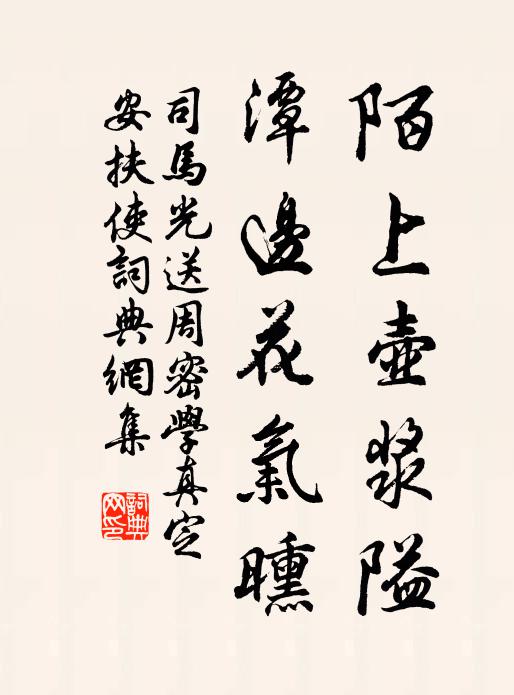 陌上壺漿隘
潭邊花氣曛
司馬光送周密學真定
安扶使詞典網集
詞典網印